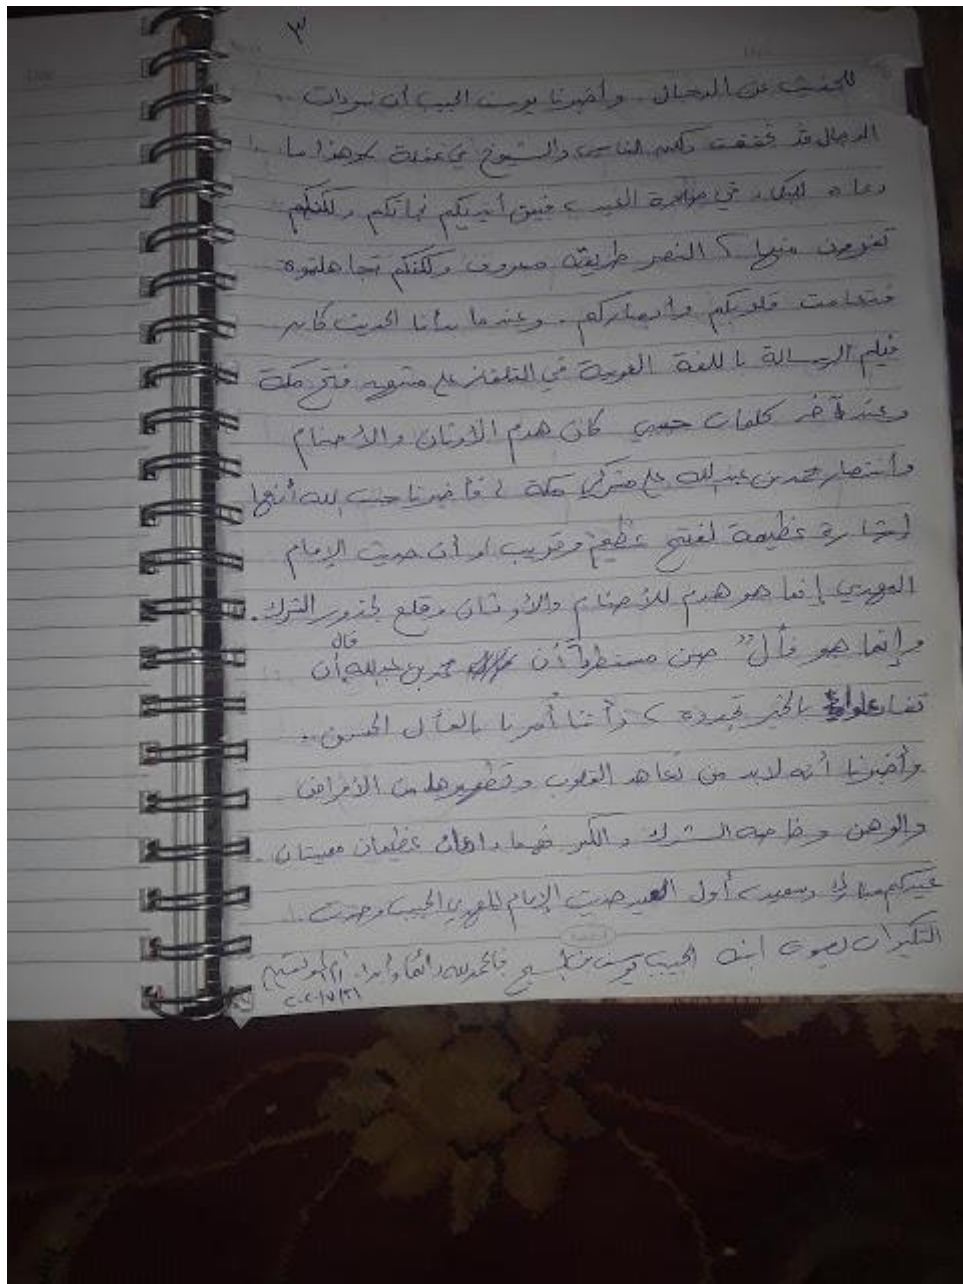 ٣
للحديث عن الدجال . وأخبرنا يوسف الحبيب أن نبوءات
الدجال قد تحققت ولكن الناس والشيوخ في غفلة وهذا ما
دعاه للبكاء في الغيب ، فبين أيديكم نجاتكم ولكنكم
تفرون منها ؟ النصر طريقه معروف ولكنكم تجاهلتموه
فتعامت قلوبكم وأبصاركم . وعندما بدأنا الحديث كان
فيلم الرسالة باللغة العربية في التلفاز على مشهد فتح مكة
وعند آخر كلمات حبيبي كان هدم الأوثان والأصنام
وانتصار محمد بن عبد الله على مشركي مكة ، فأخبرنا حبيب الله أنها
إشارة عظيمة لفتح عظيم وقريب أن حديث الإمام
المهدي إنما هو هدم للأصنام والأوثان وقلع لجذور الشرك .
وإنما هو فأل حسن أن محمد بن عبد الله قال أن
تفاءلوا بالخير تجدوه ، وأننا أمرنا بالفأل الحسن .
وأخبرنا أنه لابد من تعاهد القلوب وتطهيرها من الأمراض
والوهن وخاصة الشرك والكبر فهما داءان عظيمان مميتان .
عيدكم مبارك وسعيد ، أول العيد حديث الإمام المهدي الحبيب وحديث
التكبيرات بصوت ابنه الحبيب يوسف بن المسيح فالحمد لله دائما وأبدا .